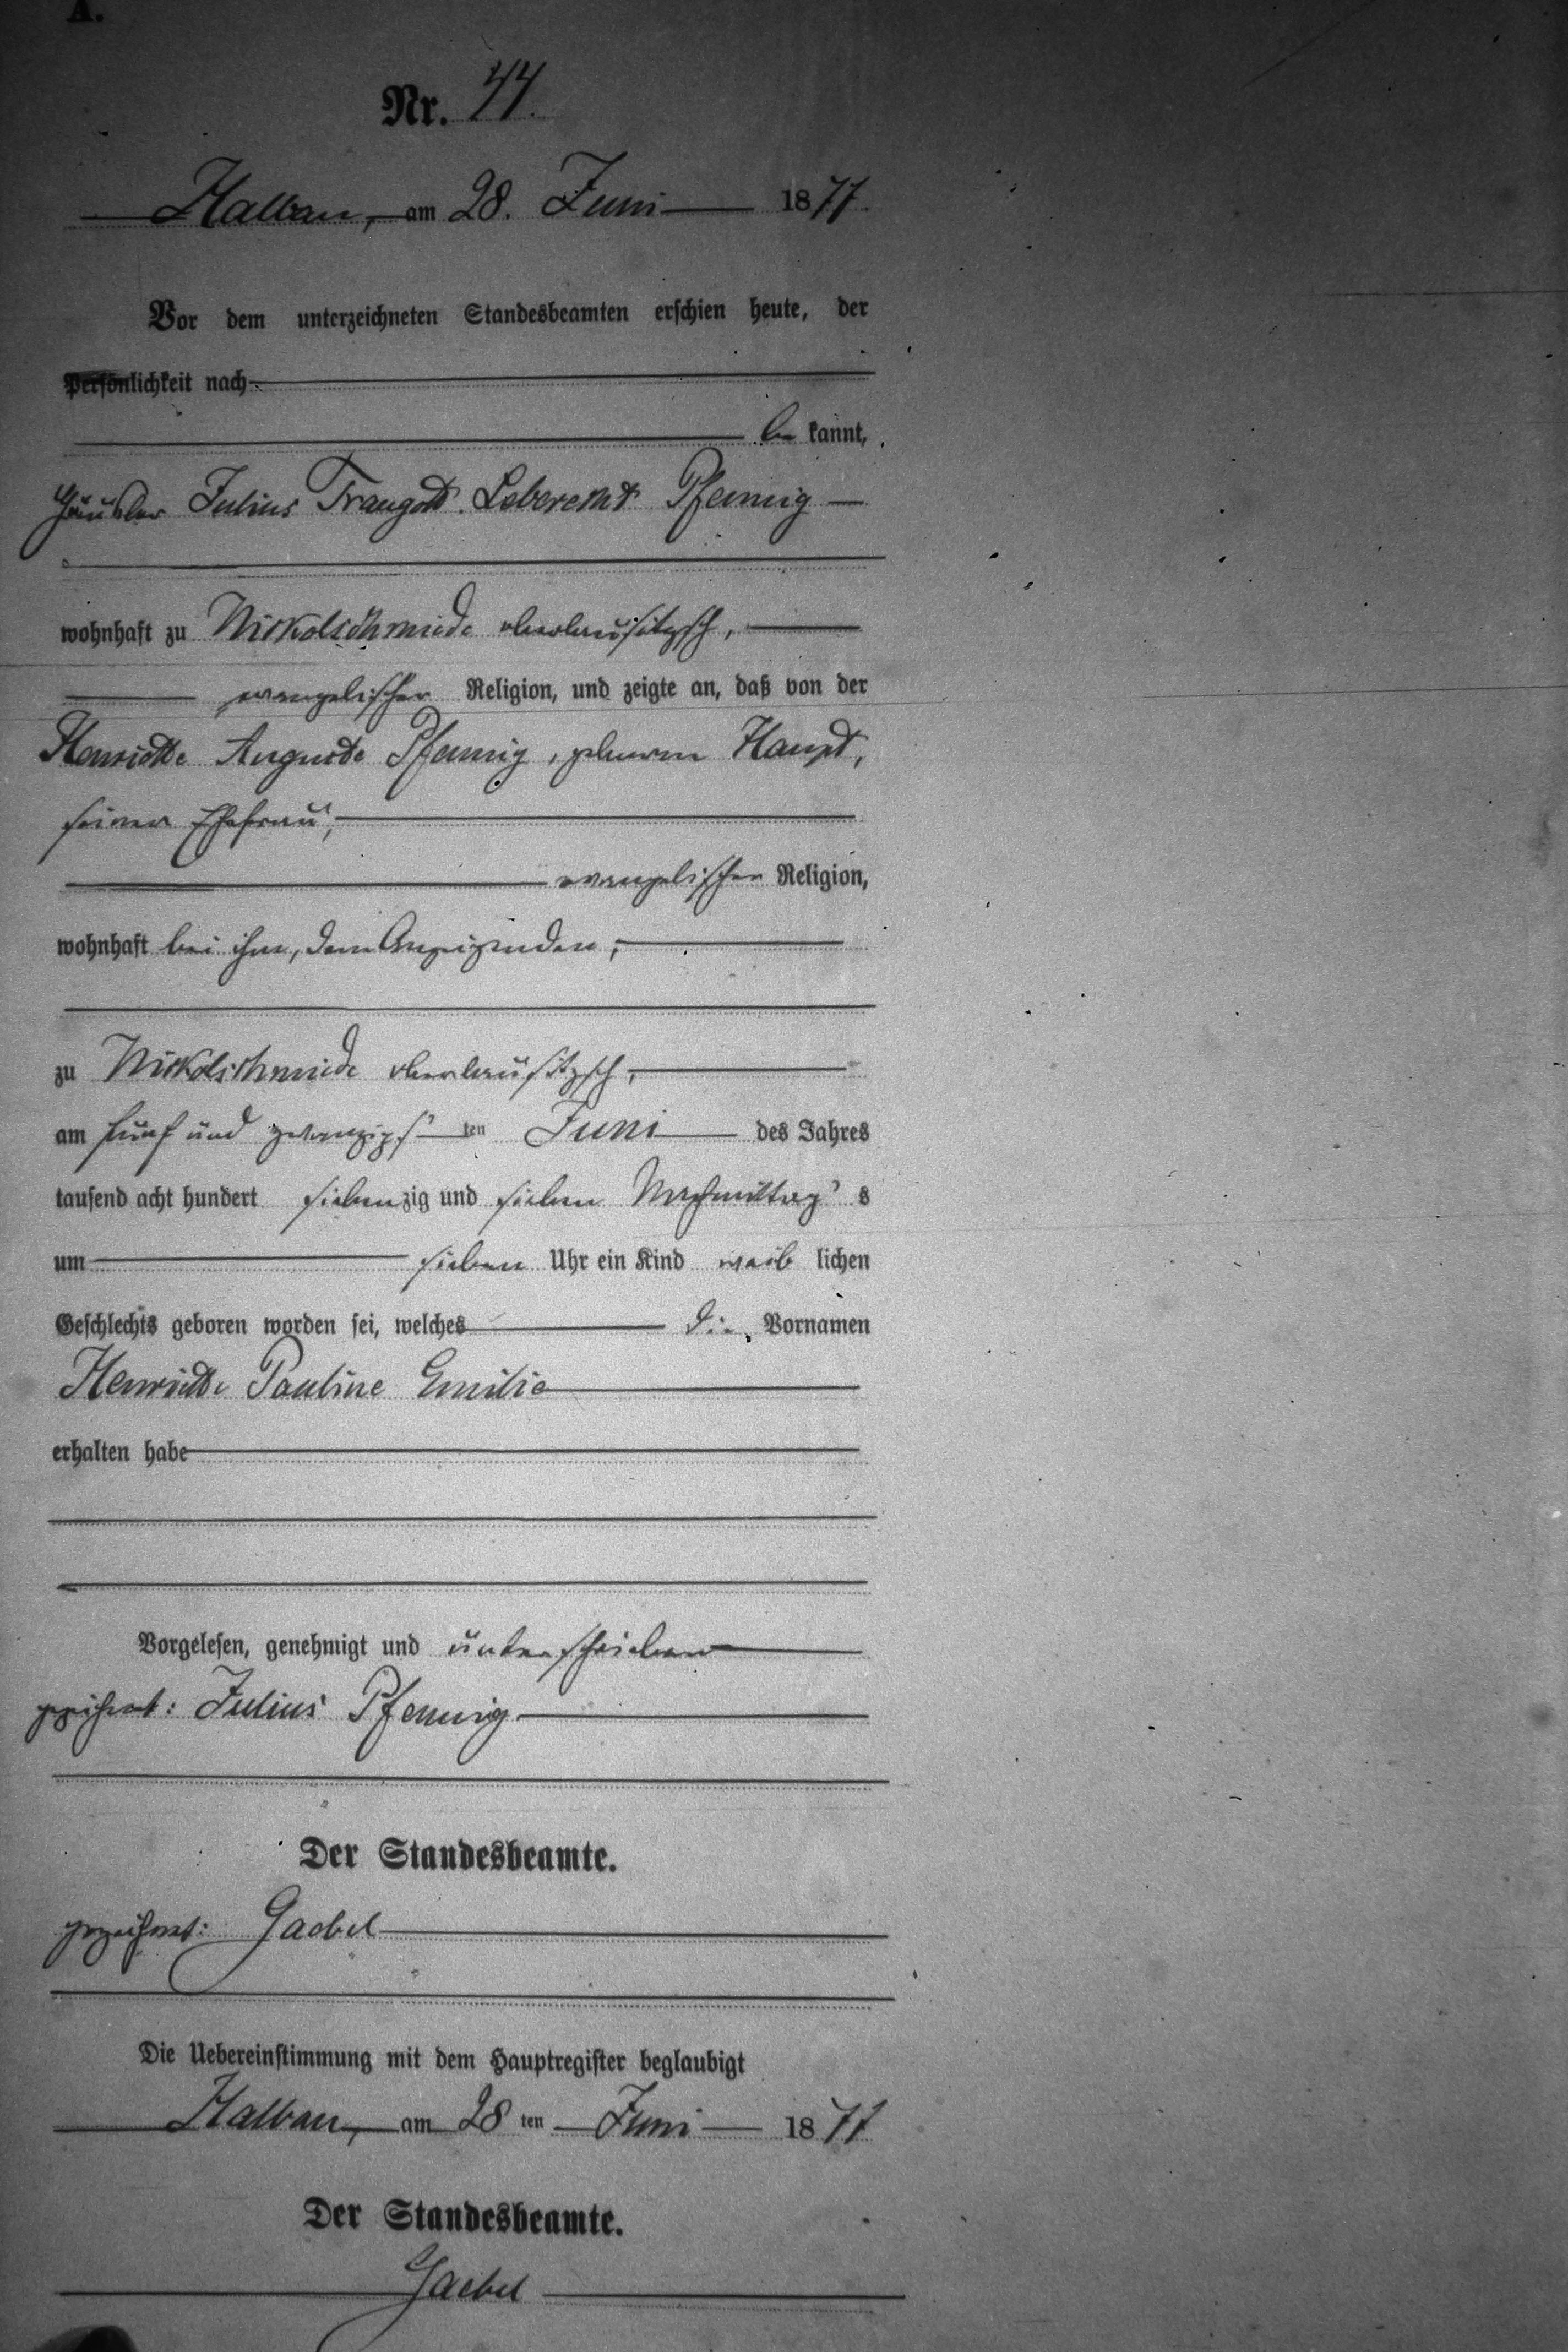 A.
Nr. 44.
Halbau, am 28. Juni 1877.
Vor dem unterzeichneten Standesbeamten erschien heute, der
Persönlichkeit nach
be kannt,
Häusler Julius Traugott Leberecht Pfennig
wohnhaft zu Nickolschmiede oberlausitzsch,
evangelischer Religion, und zeigte an, daß von der
Henriette Auguste Pfennig, geboren Haupt,
seiner Ehefrau,
evangelischer Religion,
wohnhaft bei ihm, dem Anzeigenden,
zu Nickolschmiede oberlausitzsch,
am fünf und zwanzigs ten Juni des Jahres
tausend acht hundert sieben zig und sieben Nachmittag s
um sieben Uhr ein Kind weib lichen
Geschlechts geboren worden sei, welches die Vornamen
Henriette Pauline Emilie
erhalten habe
Vorgelesen, genehmigt und unterschrieben
gezeichnet: Julius Pfennig
Der Standesbeamte.
gezeichnet: Gaebel
Die Uebereinstimmung mit dem Hauptregister beglaubigt
Halbau, am 28 ten Juni 1877
Der Standesbeamte.
Gaebel